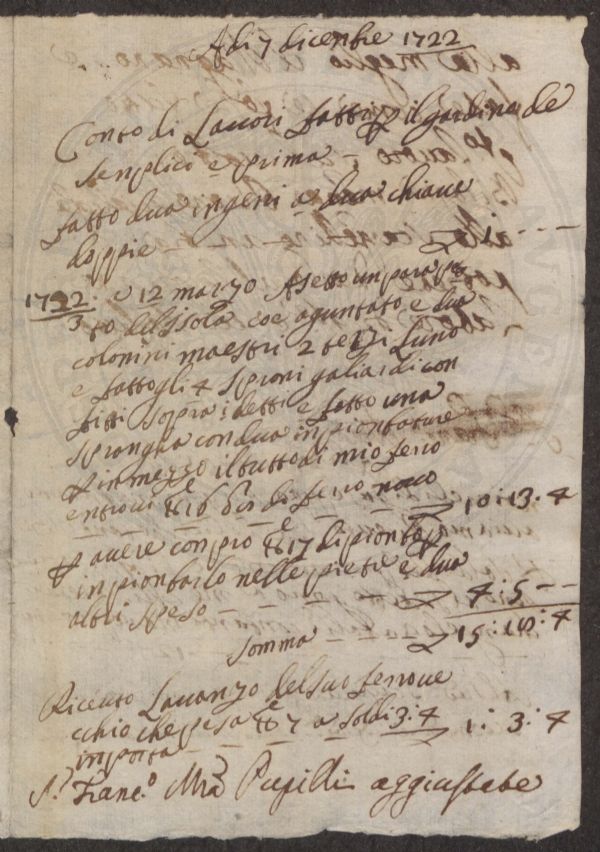 Adi 7 dicenbre 1722
Conto di Lauori fatti p il gardino de
senplici e prima
fatto dua ingeni a dua chiaue
doppie - - - -
1722/3 . e 12 marzo Asetto un parapè
to dell isola coe aguntato e dua
colonini maestri 2 terzi Luno
e fattogli 4 sproni galiardi con
fitti sopra : detti e fatto una
sprongha con dua inpionbature
in mezzo il tutto di mio fero
entroui ℔ 16 di fero nouo 10 : 13 . 4
P auere conpro ℔ 17 di pionbo p
inpionbarlo nelle pietre e dua
altri speso - - - - 4 : 5 - -
Somma 15 : 18 : 4
Riceuto Lauanzo del suo ferroue
cchio che pesa ℔ 7 a soldi 3 : 4 1 : 3 : 4
inporta - - - -
S.r Franc.o Mra Pupilli aggiustate